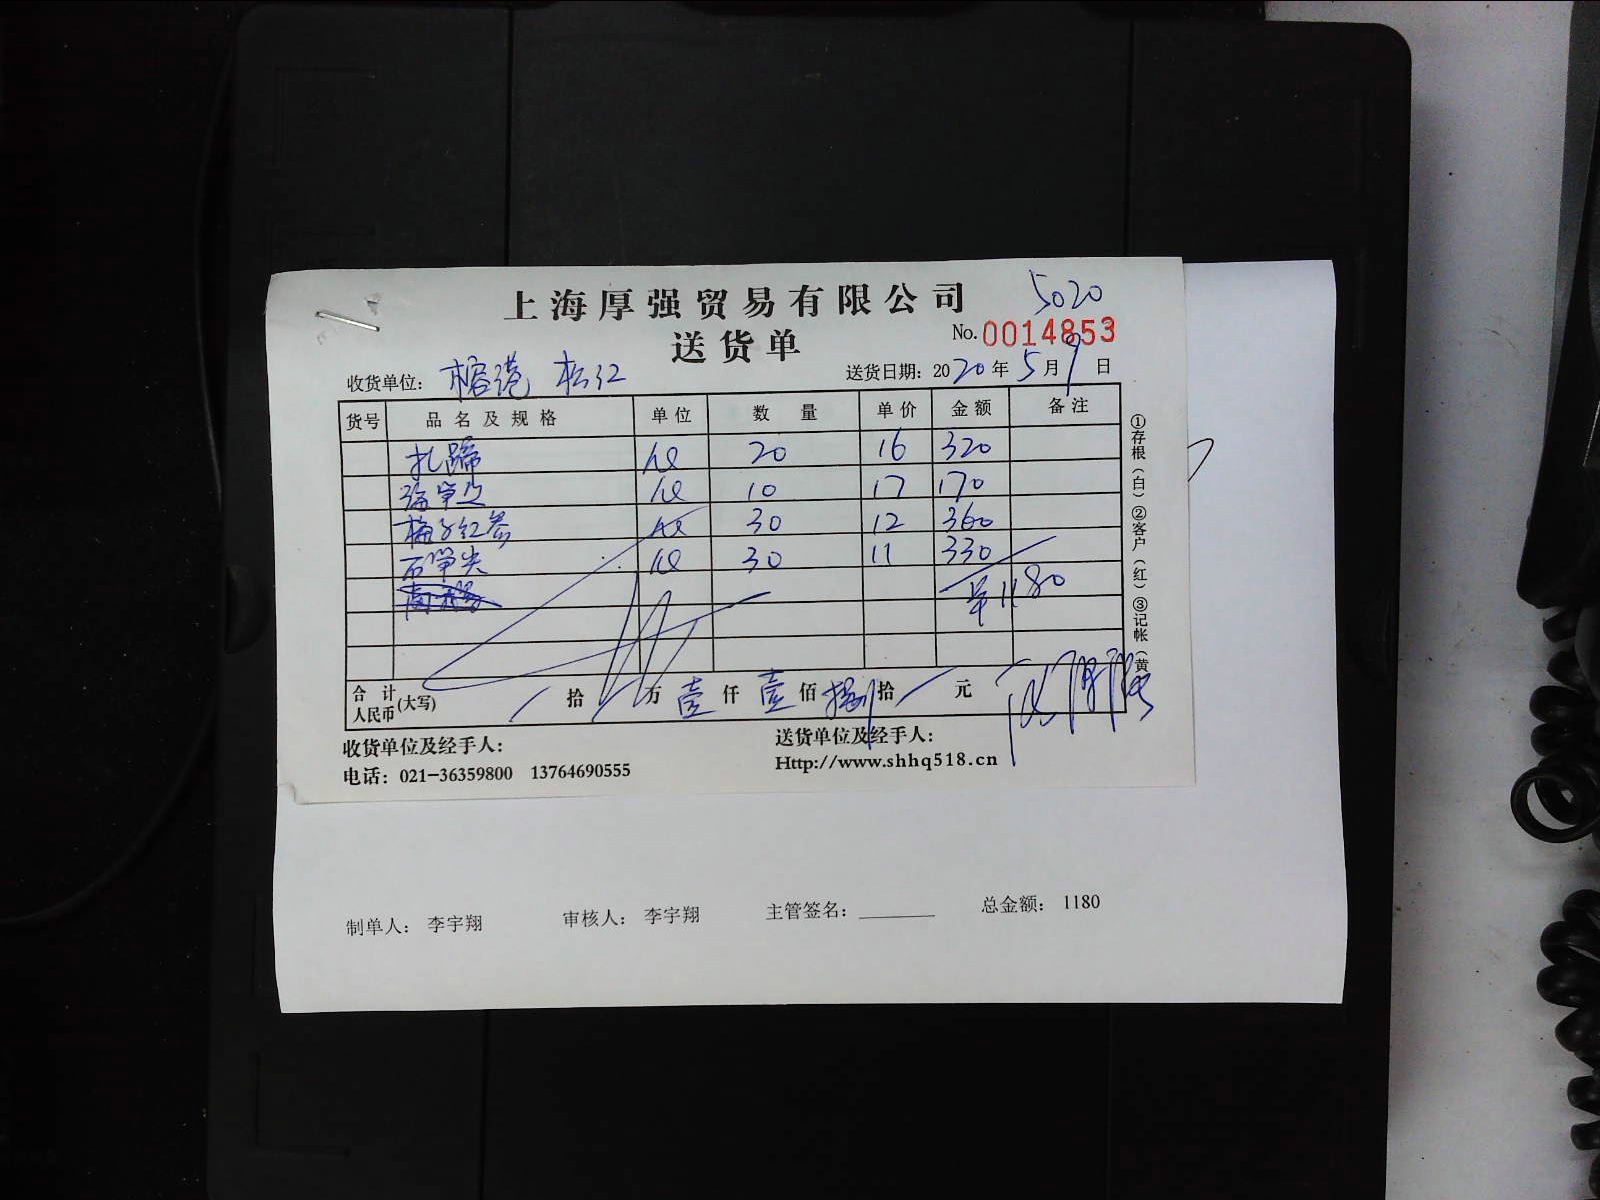 上海厚强贸易有限公司
5020
送货单
No. 0014853
收货单位： 榕港 松江
送货日期：2020年5月9日
货号 品名及规格 单位 数量 单价 金额 备注
扎蹄 20 16 320
10 17 170
梅子红参 30 12 360
石笋尖 30 11 330
¥1180
合计人民币(大写) 拾 万 壹 仟 壹 佰 捌 拾 元
收货单位及经手人：
送货单位及经手人：
电话：021-36359800 13764690555
Http://www.shhq518.cn
①存根（白）②客户（红）③记帐（黄
制单人： 李宇翔 审核人： 李宇翔 主管签名：________ 总金额： 1180